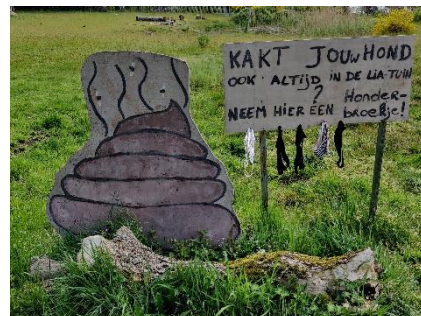 KAKT JOUW HOND
OOK ALTIJD IN DE LIA-TUIN
?
NEEM HIER EEN Honder-
broekje!